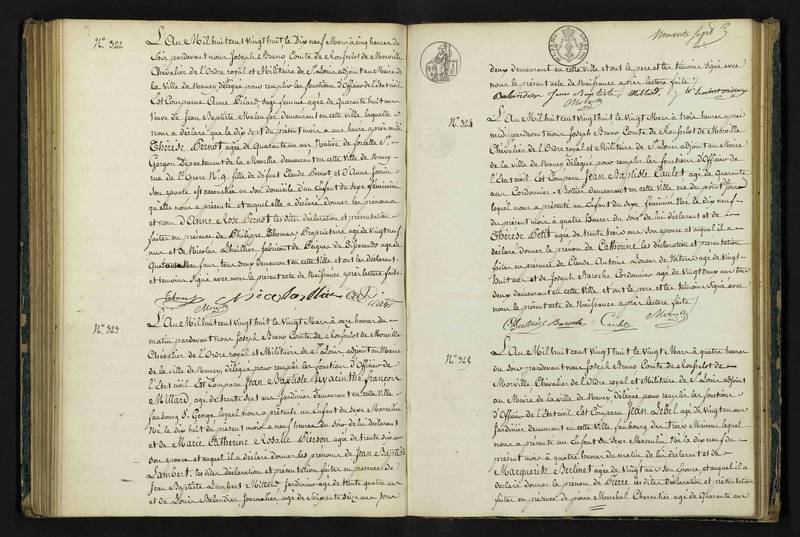 N.° 322
L'An Mil huit cent vingt huit le Dix neuf Mars à cinq heures du
soir pardevant nous Joseph Bruno Comte de Rousselot de Morville
Chevalier de l'Ordre royal et Militaire de St Louis adjoint au Maire de
la Ville de Nancy délégué pour remplir les fonctions d'Officier de l'Etat civil
Est Comparue Anne Picard sage femme agée de Quarante huit ans
veuve de Jean Baptiste demeurant en cette ville laquelle
nous a déclaré que le dix sept du présent mois a une heure après midi
Thérèse Pernot agée de Quarante un ans Native de
Gorgon Département de la Meurthe demeurant en cette ville de Nancy
rue de l'Opera N.° 9. fille de défunt Claude Pernot et d'Anne
son epouse est accouchée en son domicile d'un Enfant du sexe féminin
qu'elle nous a présenté et auquel elle a déclaré donner les prénoms
et nom d'Anne Rose Pernot les dites déclaration et présentation
faites en présence de Philippe Thomas Propriétaire agé de Vingt neuf
ans et de Nicolas Lhuillier fabricant de Peignes agé de
Quarante ans tous deux demeurant en cette ville et ont les déclarant
et temoins signé avec nous le présent acte de Naissance après lecture faite
Thomas Nicolas Lhuillier A Picard
Morville
N.° 323
L'An Mil huit cent vingt huit le Vingt Mars à onze heures du
matin pardevant nous Joseph Bruno Comte de Rousselot de Morville
Chevalier de l'Ordre royal et Militaire de St Louis adjoint au Maire
de la ville de Nancy, délégué pour remplir les fonctions d'Officier de
l'Etat civil Est Comparu Jean Baptiste Hyacinthe François
Millard, agé de trente sept ans Jardinier demeurant en cette Ville
faubourg St George lequel nous a présenté un Enfant du sexe Masculin
Né le dix huit du présent mois à neuf heures du soir de lui déclarant
et de Marie Catherine Rosalie Pierson agée de trente six ans
son epouse et auquel il a déclaré donner les prénoms de Jean Baptiste
Lambert. les dites déclaration et présentation faites en présence de
Jean Baptiste Lambert Millard, Jardinier agé de trente quatre ans
et de Louis Blandin, Journalier agé de soixante seize ans, tous
Nonante sept
deux demeurant en cette ville et ont le pere et les témoins signé avec
nous le présent acte de Naissance après lecture faite
Jean Baptiste Millard
Morville
N.° 324
L'An Mil huit cent Vingt huit le Vingt Mars à trois heures après
midi pardevant nous Joseph Bruno Comte de Rousselot de Morville
Chevalier de l'Ordre royal et Militaire de St Louis adjoint au Maire
de la ville de Nancy délégué pour remplir les fonctions d'Officier de
l'Etat civil Est Comparu Jean Baptiste Caulet agé de Quarante
ans Cordonnier Bottier demeurant en cette ville, rue du point jour
lequel nous a présenté un Enfant du sexe féminin Né le dix neuf
du présent mois à quatre heures du soir de lui déclarant et de
Thérèse Petit agée de trente trois ans son epouse et auquel il a
déclaré donner le prénom de Catherine. les déclaration et présentation
faites en présence de Claude Antoine agé de Vingt
huit ans et de Joseph Baroche Cordonnier agé de Vingt deux ans tous
deux demeurant en cette ville. et ont le pere et les temoins signé avec
nous le présent acte de Naissance après lecture faite
Baroche Morville
N.° 325
L'An Mil huit cent vingt huit le Vingt Mars à quatre heures
du soir pardevant nous Joseph Bruno Comte de Rousselot de
Morville Chevalier de l'Ordre royal et Militaire de St Louis adjoint
au Maire de la ville de Nancy, délégué pour remplir les fonctions
d'Officier de l'Etat civil Est Comparu Jean agé de Vingt ans
Jardinier demeurant en cette Ville faubourg des trois Maisons lequel
nous a présenté un Enfant du sexe Masculin Né le dix neuf du
présent mois à quatre heures du matin de lui déclarant et de
Marguerite agée de Vingt ans son Epouse, et auquel il a
déclaré donner le prénom de Pierre les dites déclaration et présentation
faites en présence de Marchal Charentier agé de Quarante ans